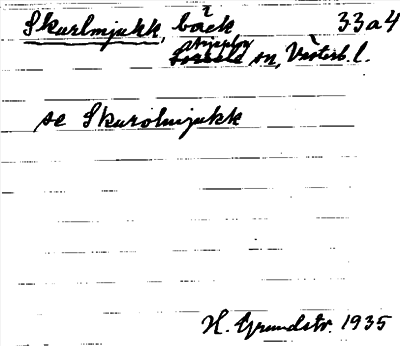 Skurlmjukk, bäck 33a4
Arjeplog
Sorsele sn, Västerb. l.
se Skurolmjukk
H. Grundstr. 1935